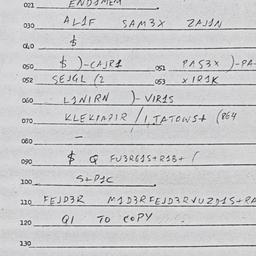 021 ENDIMEM
030 AL1F SAM3X ZAJ1N
040 $
050 $ )-CAJR1 051 PA53X )-PA-
052 SEJGL (2 053 X1R1K
060 L1N1RN )-VIR1S
070 KLEKIAPIR / I, JATOWS+ (864
080 -
090 $ Q FU3RG1S+R1B+ (
100 S+P1C
110 FEJD3R M1D3RFEJD3RVUZD1S+RA
120 Q1 TO COPY
130